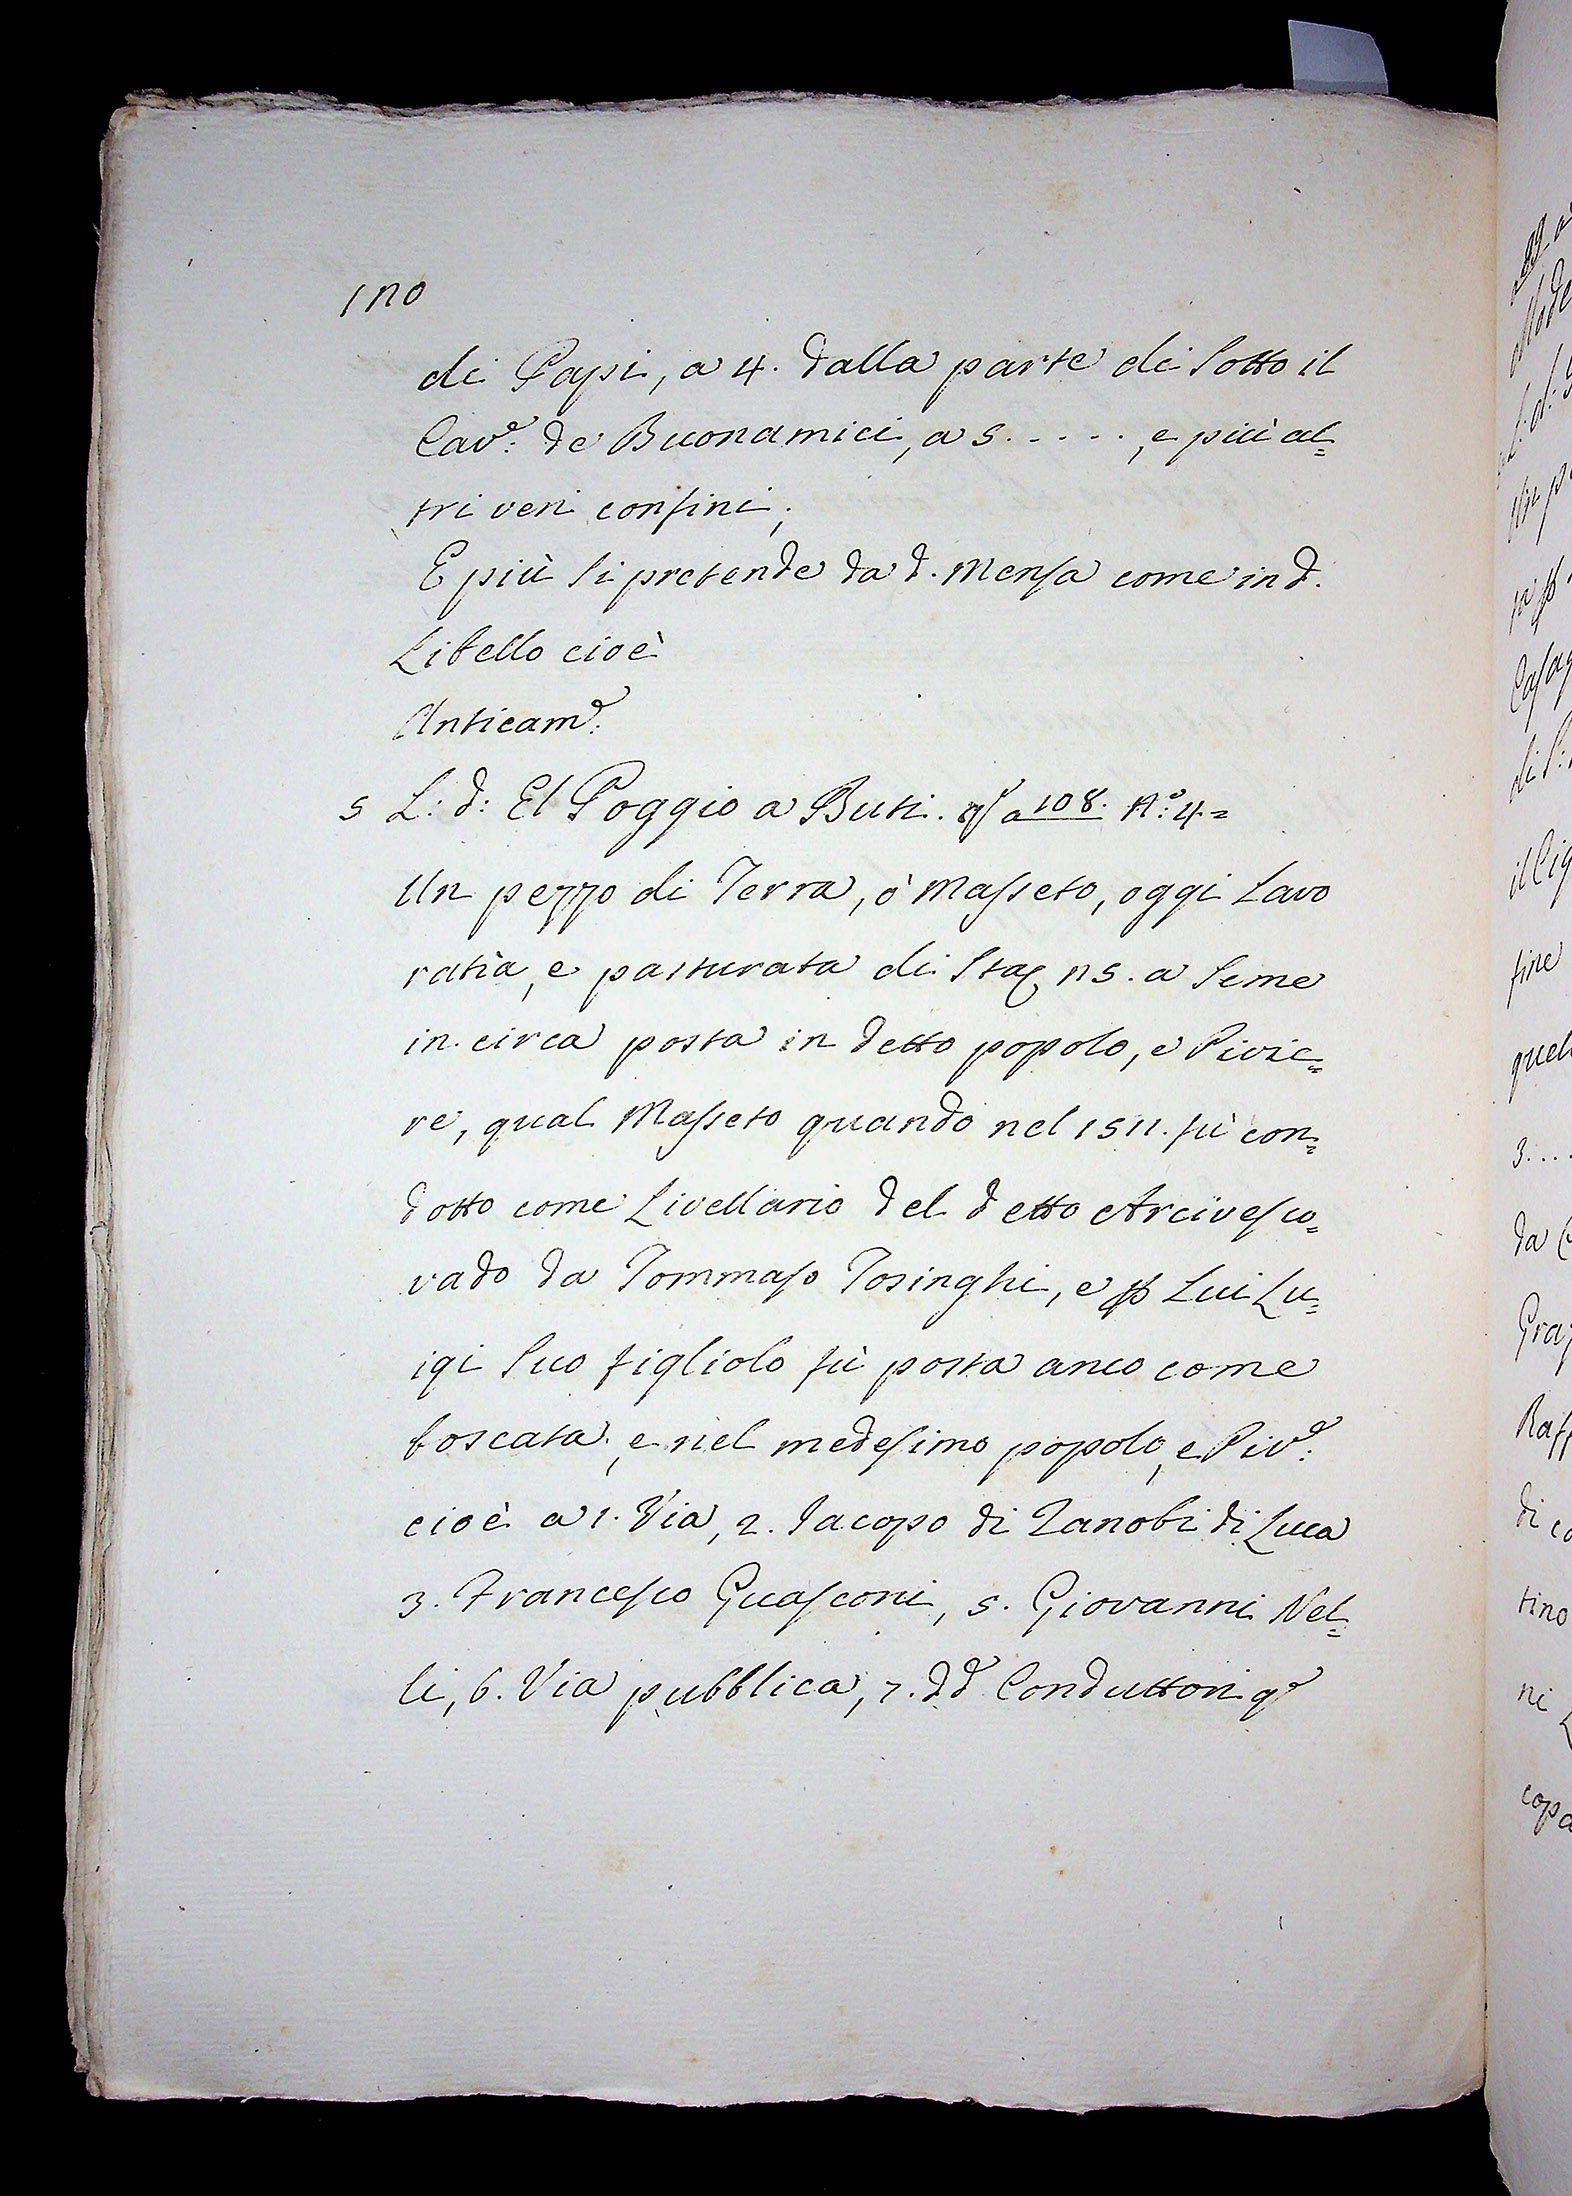 120
di Papi, a 4. dalla parte di Sotto il
Cav.e de Buonamici, a 5. . . . . ., e più al=
tri veri confini;
E più Si pretende da d. Mensa come in d.
Libello cioè
Anticam.e
5 L: d: El Poggio a Buti. a 108. N.o 4=
Un pezzo di Terra, ò Masseto, oggi Lavo
ratìa, e pasturata di Sta 25. a Seme
in circa posta in detto popolo, e Pivie=
re, qual Masseto quando nel 1511. fù con=
dotto come Livellario del detto Arcivesco=
vado da Tommaso Tosinghi, e p Lui Lu=
igi Suo figliolo fù posta anco come
boscata, e nel medesimo popolo, e Piv.e
cioè a 1. Via, 2. Jacopo di Zanobi di Luca
3. Francesco Guasconi, 5. Giovanni Nel=
li, 6. Via pubblica, 7. dd.i Conduttori q.o
3....
da
di
tino
ni
fine